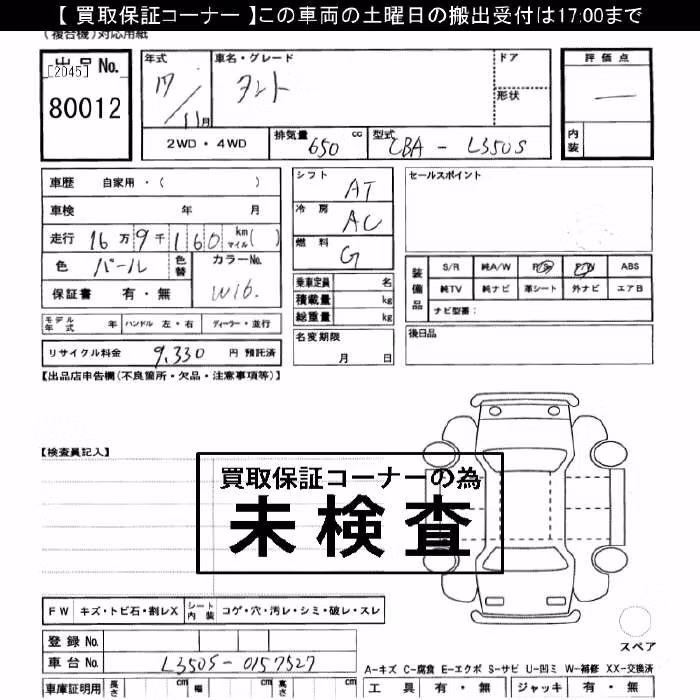 【 買取保証コーナー 】この車両の土曜日の搬出受付は17:00まで
(複合機)対応用紙
出品 No.
[2045]
80012
年式
17/11月
車名・グレード
タント
ドア
形状
評価点
—
内装
2WD・4WD
排気量 650 cc
型式 CBA - L350S
車歴 自家用・( )
車検 年 月
走行 16万9千160 km マイル( )
色 パール
色替
カラーNo.
W16.
保証書 有・無
シフト AT
冷房 AC
燃料 G
乗車定員 名
積載量 kg
総重量 kg
名変期限
月 日
セールスポイント
装備品
S/R 純A/W P/S P/W ABS
純TV 純ナビ 革シート 外ナビ エアB
ナビ型番:
後日品
モデル年式 年 ハンドル 左・右 ディーラー・並行
リサイクル料金 9,330 円 預託済
【出品店申告欄(不良箇所・欠品・注意事項等)】
【検査員記入】
買取保証コーナーの為
未検査
FW キズ・トビ石・割レX
シート内装 コゲ・穴・汚レ・シミ・破レ・スレ
登録 No.
車台 No. L350S-0157527
スペア
A-キズ C-腐食 E-エクボ S-サビ U-凹ミ W-補修 XX-交換済
車庫証明用 長さ cm 幅 cm 高さ cm
工具 有・無 ジャッキ 有・無